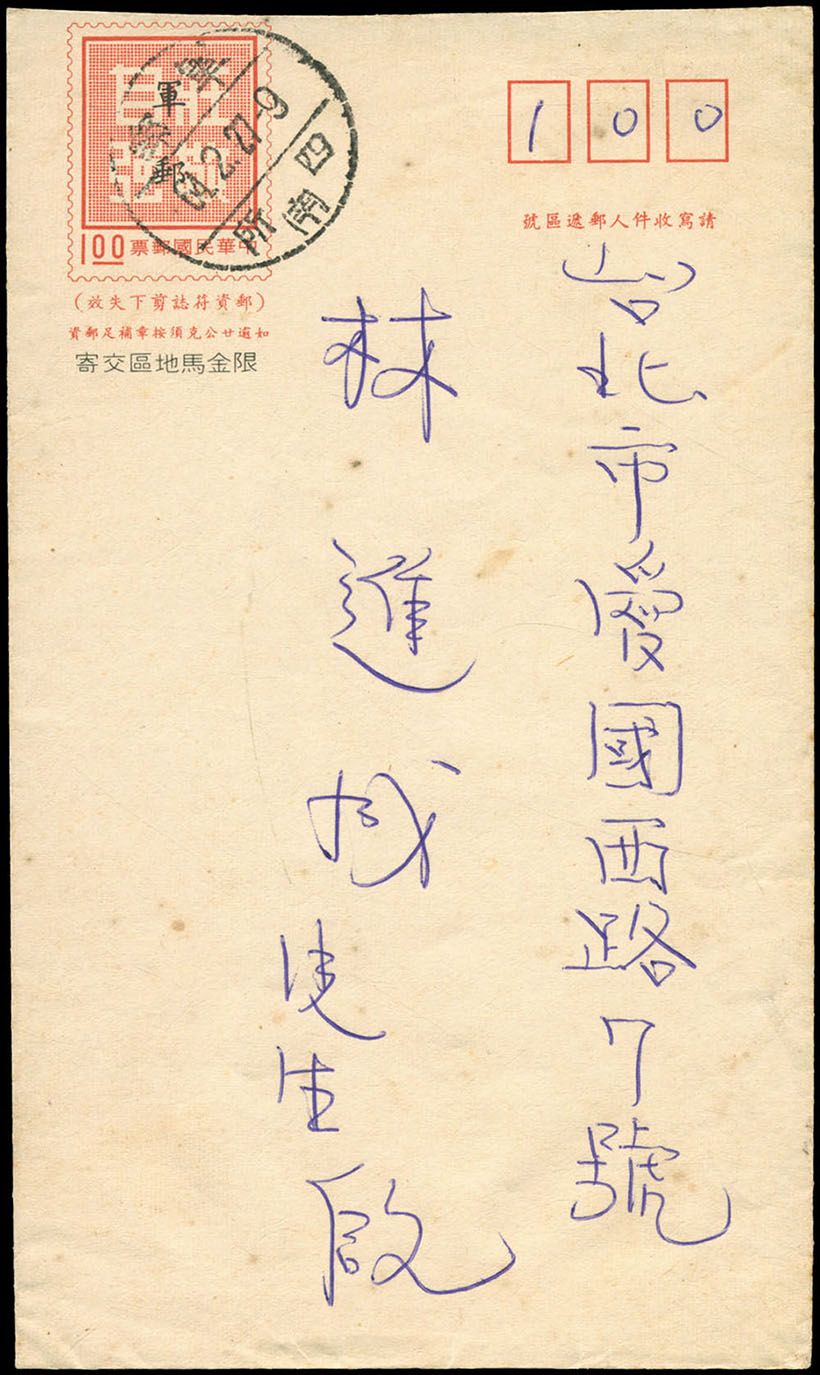 莊敬
自強
軍郵
中華民國郵票
1.00
(郵資符誌剪下失效)
如逾廿公克須按章補足郵資
限金馬地區交寄
100
請寫收件人郵遞區號
台北市愛國西路7號
林進成先生啟